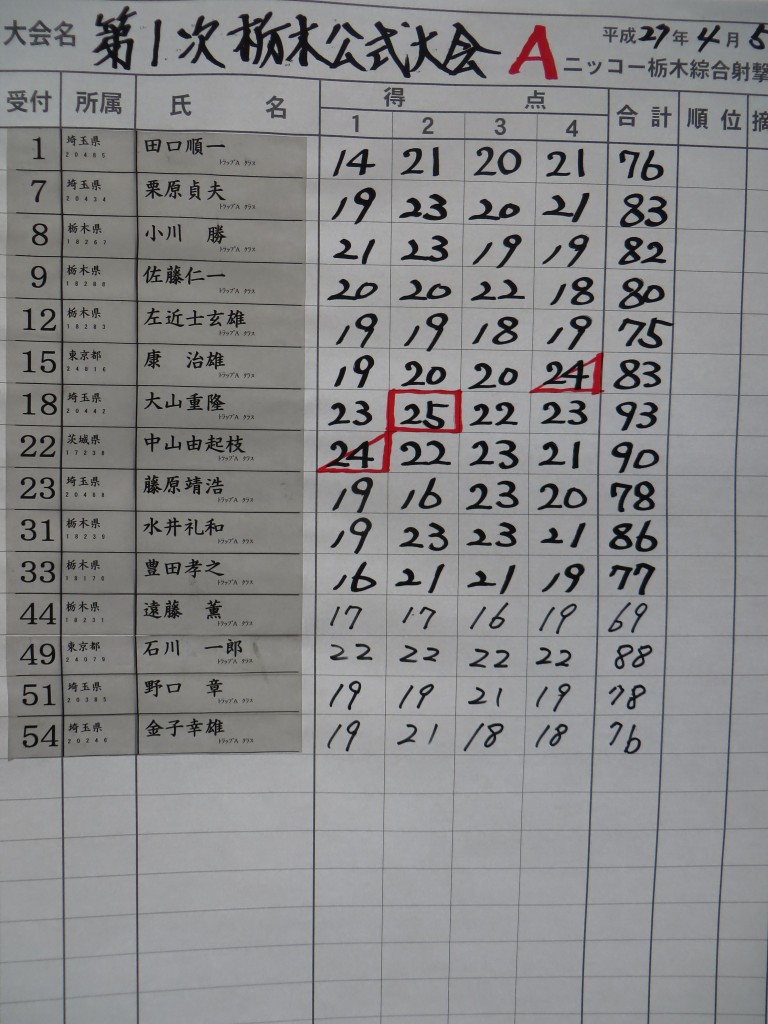 大会名 第1次栃木公式大会 A 平成27年4月5
ニッコー栃木綜合射撃
受付 所属 氏 名 得 点 合計 順位 摘
1 2 3 4
1 埼玉県 田口順一 14 21 20 21 76
20485 トラップA クラス
7 埼玉県 栗原貞夫 19 23 20 21 83
20434 トラップA クラス
8 栃木県 小川 勝 21 23 19 19 82
18267 トラップA クラス
9 栃木県 佐藤仁一 20 20 22 18 80
18288 トラップA クラス
12 栃木県 左近士玄雄 19 19 18 19 75
18283 トラップA クラス
15 東京都 康 治雄 19 20 20 24 83
24816 トラップA クラス
18 埼玉県 大山重隆 23 25 22 23 93
20442 トラップA クラス
22 茨城県 中山由起枝 24 22 23 21 90
17238 トラップA クラス
23 埼玉県 藤原靖浩 19 16 23 20 78
20408 トラップA クラス
31 栃木県 水井礼和 19 23 23 21 86
18239 トラップA クラス
33 栃木県 豊田孝之 16 21 21 19 77
18170 トラップA クラス
44 栃木県 遠藤 薫 17 17 16 19 69
18231 トラップA クラス
49 東京都 石川 一郎 22 22 22 22 88
24079 トラップA クラス
51 埼玉県 野口 章 19 19 21 19 78
20385 トラップA クラス
54 埼玉県 金子幸雄 19 21 18 18 76
20246 トラップA クラス